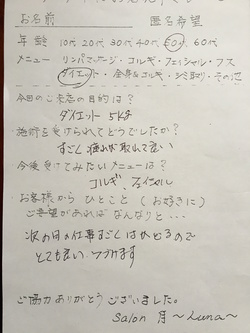 お名前 匿名希望
年齢 10代 20代 30代 40代 50代 60代
メニュー リンパマッサージ・コルギ・フェイシャル・フス
ダイエット・全身&コルギ・シミ取り・その他
今回のご来店の目的は?
ダイエット 5kg
施術を受けられてどうでしたか?
すごく疲れが取れて良い
今後受けてみたいメニューは?
コルギ、フェイシャル
お客様から ひとこと (お好きに)
ご要望があれば なんなりと…
次の日の仕事すごくはかどるので
とても良い
ご協力ありがとうございました。
Salon 月 〜Luna〜